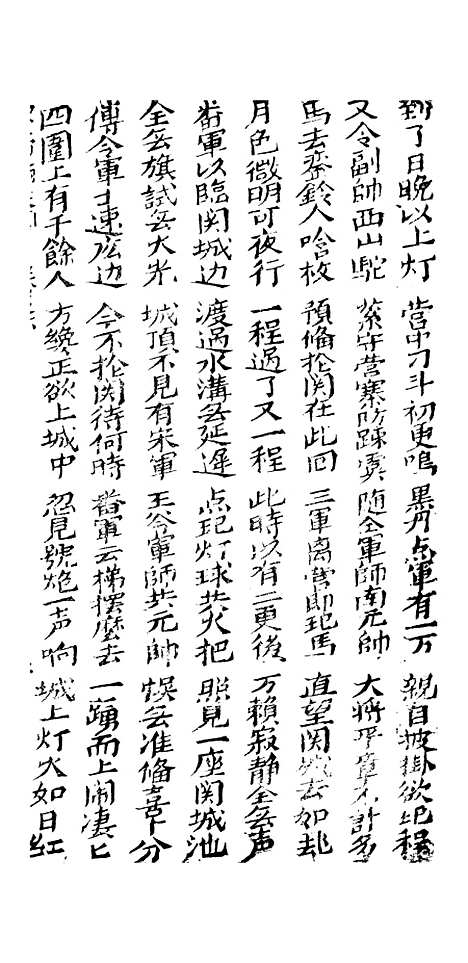 到了日晚以上灯 營中刁斗初更鳴 黑丹点軍有一万 親自披掛欲起程
又令副帥西山駝 紧守营寨防踈虞 随全軍師南元帅 大將平章不計多
馬去鸞鈴人唅枚 預俻抢関在此回 三軍离营即起馬 直望関城去如飛
月色微明可夜行 一程過了又一程 此時以有二更後 万賴寂静全無声
番軍以臨関城边 渡過水溝無延遲 点起灯球共火把 照見一座関城池
全無旗試無火光 城頂不見有宋軍 王爷軍師共元帥 悞無准俻喜十分
傅令軍士速边 今不抢関待何時 番軍云梯擺麽去 一踴而上闹凄匕
四圍上有千餘人 方纔正欲上城中 忽見號炮一声响 城上灯火如日紅